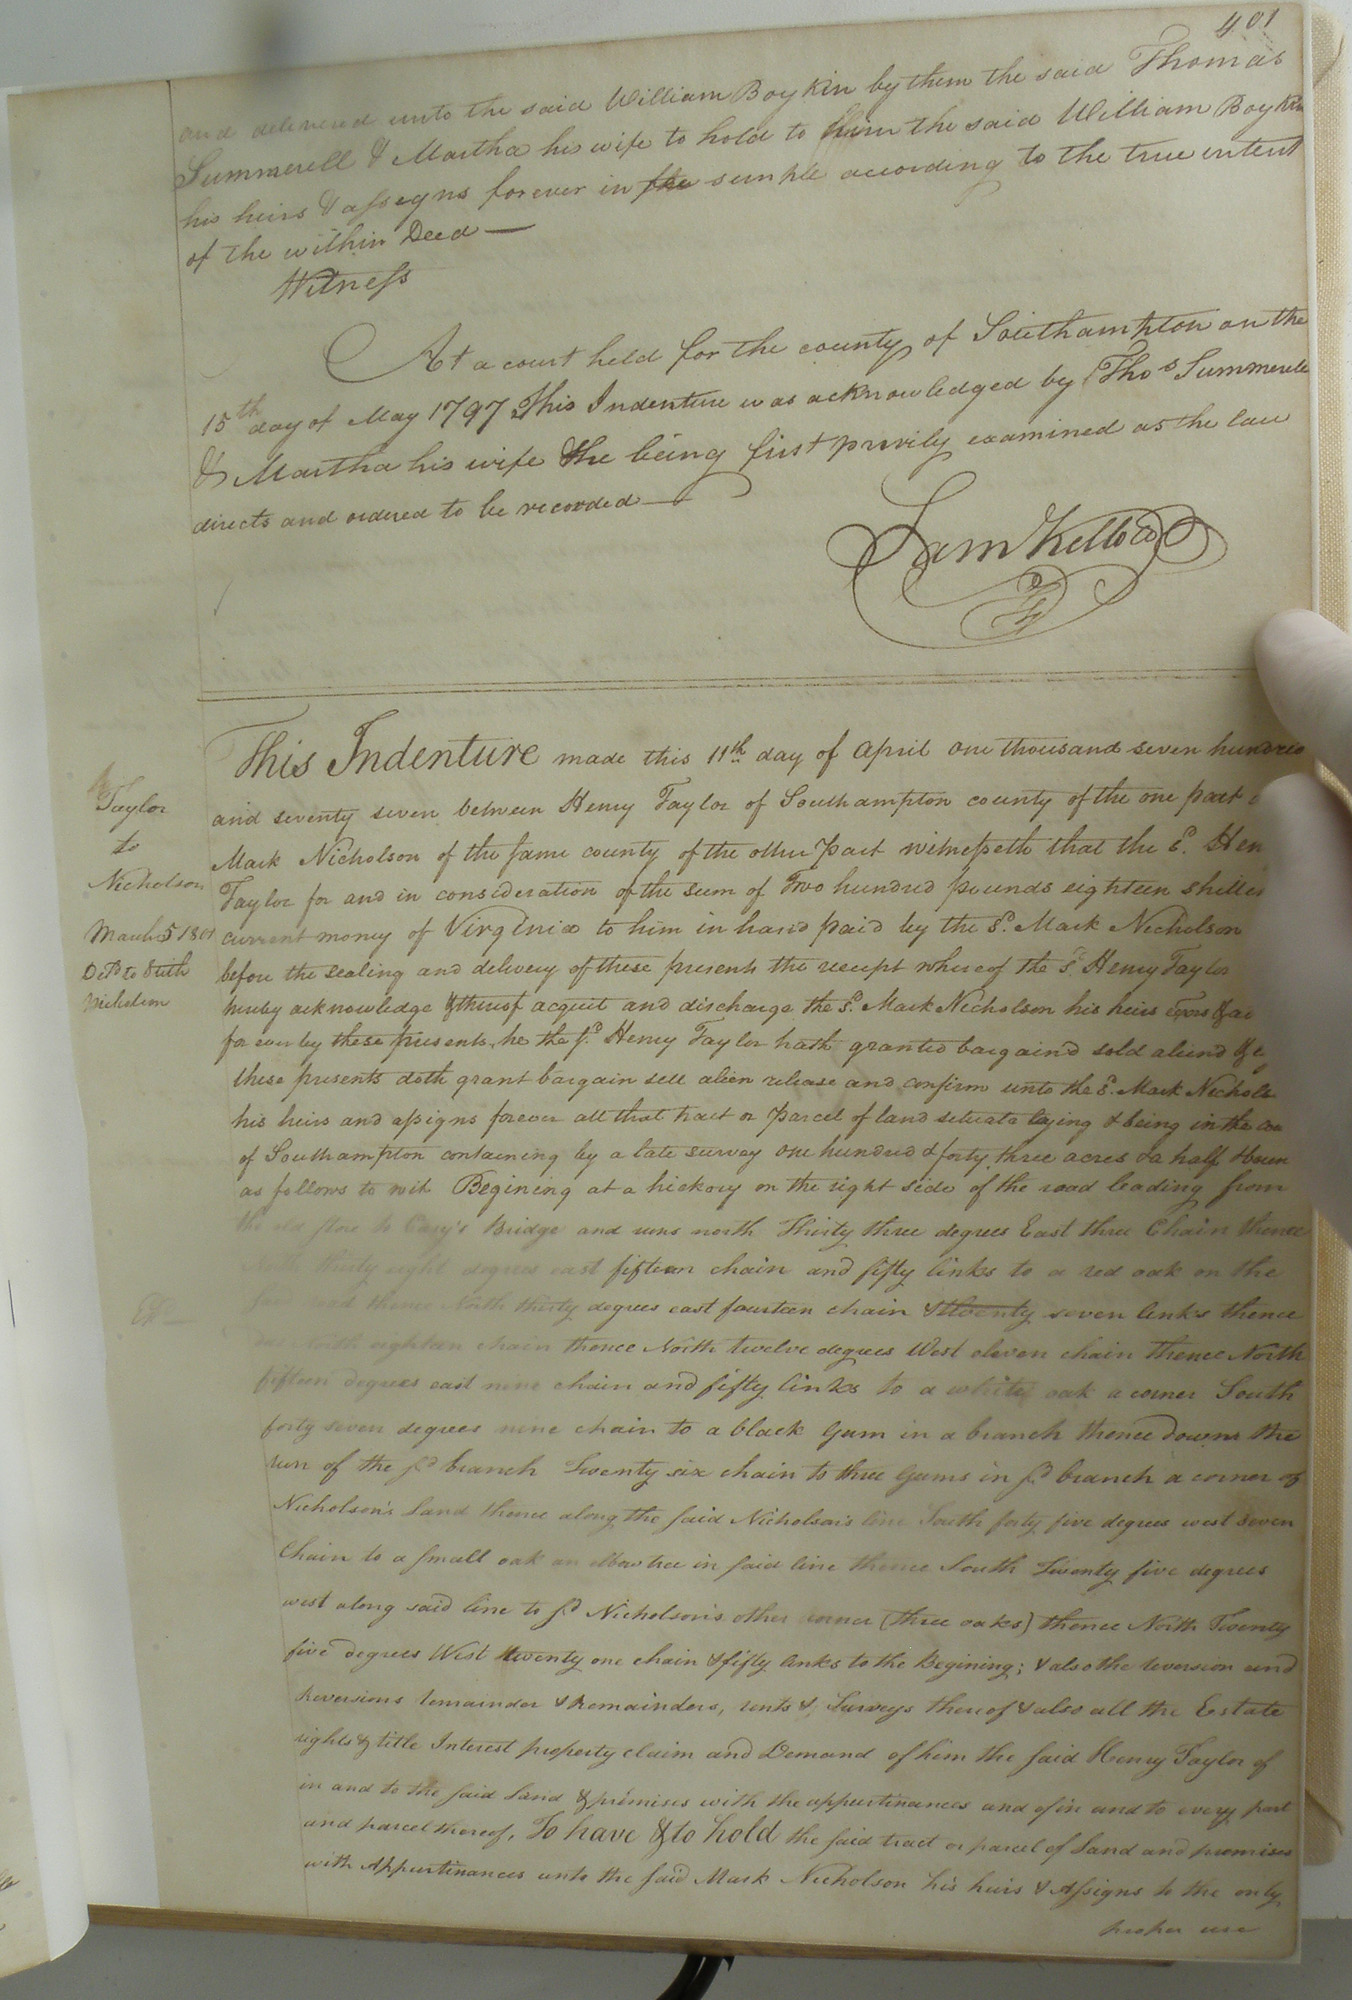 401
and delivered unto the said William Boykin by them the said Thomas
Summerell & Martha his wife to hold to him the said William Boykin
his heirs & assegns forever in fee simple according to the true intent
of the within Deed —
Witness
At a court held for the county of Southampton on the
15th day of May 1797 This Indenture was acknowledged by Thos Summerell
& Martha his wife She being first privily examined as the law
directs and ordered to be recorded —
Sam Kello
This Indenture made this 11th day of April one thousand seven hundred
and seventy seven between Henry Taylor of Southampton county of the one part
Mark Nicholson of the same county of the other Part witnesseth that the sd. Hen
Taylor for and in consideration of the sum of Two hundred pounds eighteen shillin
current money of Virginia to him in hand paid by the sd. Mark Nicholson
before the sealing and delivery of these presents the receipt whereof the sd. Henry Taylor
hereby acknowledge & thereof acquit and discharge the sd. Mark Nicholson his heirs Exors & ad
for ever by these presents, he the sd. Henry Taylor hath granted bargain'd sold aliend &
these presents doth grant bargain sell alien release and confirm unto the sd. Mark Nichols
his heirs and assigns forever all that tract or parcel of land setuate lying & being in the cou
of Southampton containing by a late survey one hundred & forty three acres & a half
as follows to wit Begining at a hickory on the right side of the road leading from
the old store to Cary's Bridge and runs north Thirty three degrees East three Chain thence
North thirty eight degrees east fifteen chain and fifty links to a red oak on the
said road thence North thirty degrees east fourteen chain & twenty seven links thence
north eighteen chain thence North twelve degrees West eleven chain thence North
fifteen degrees east nine chain and fifty links to a white oak a corner South
forty seven degrees nine chain to a black Gum in a branch thence down the
run of the sd branch Twenty six chain to three Gums in sd branch a corner of
Nicholson's Land thence along the said Nicholson's line South forty five degrees west seven
Chain to a small oak an elbow tree in said line thence South Twenty five degrees
west along said line to sd Nicholson's other corner (three oaks) thence North Twenty
five degrees West twenty one chain & fifty links to the Begining; & also the reversion and
Reversions remainder & Remainders, rents & Surveys thereof & also all the Estate
rights & title Interest property claim and Demand of him the said Henry Taylor of
in and to the said Land & primises with the appurtinances and of in and to every part
and parcel thereof, To have & to hold the said tract or parcel of Land and premises
with Appurtinances unto the said Mark Nicholson his heirs & Assigns to the only
proper use
Taylor
to
Nicholson
March 5 1801
Deld to Seth
Nicholson